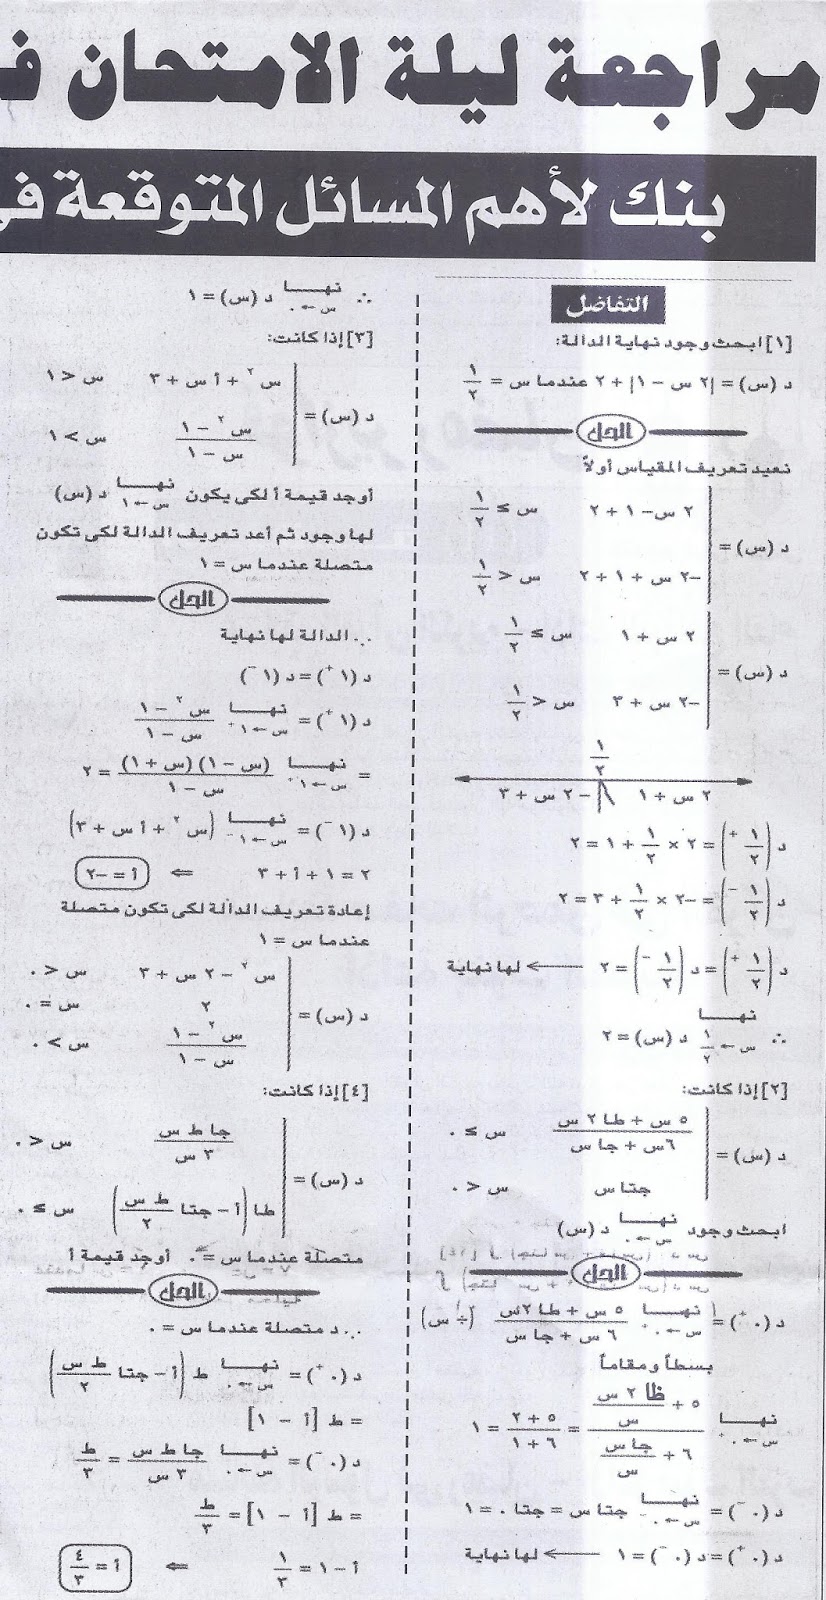 مراجعة ليلة الامتحان ف
بنك لأهم المسائل المتوقعة فى
التفاضل
[١] ابحث وجود نهاية الدالة:
د (س) = |٢ س – ١| + ٢ عندما س = ١/٢
الحل
نعيد تعريف المقياس أولاً
٢ س – ١ + ٢    س ≥ ١/٢
د (س) =
–٢ س + ١ + ٢    س < ١/٢
٢ س + ١    س ≥ ١/٢
د (س) =
–٢ س + ٣    س < ١/٢
١/٢
٢ س + ١    – ٢ س + ٣
د (١/٢ +) = ٢ × ١/٢ + ١ = ٢
د (١/٢ –) = –٢ × ١/٢ + ٣ = ٢
د (١/٢ +) = د (١/٢ –) = ٢ ← لها نهاية
∴ نهــا س ← ١/٢ د (س) = ٢
[٢] إذا كانت:
٥ س + طا ٢ س / ٦ س + جا س    س ≥ ٠
د (س) =
جتا س    س < ٠
ابحث وجود نهــا س ← ٠ د (س)
الحل
د (٠+) = نهــا س ← ٠+ ٥ س + طا ٢ س / ٦ س + جا س (÷ س)
بسطاً ومقاماً
نهــا س ← ٠+ (٥ + ظا ٢ س / س) / (٦ + جا س / س) = ٥ + ٢ / ٦ + ١ = ١
د (٠–) = نهــا س ← ٠– جتا س = جتا ٠ = ١
د (٠+) = د (٠–) = ١ ← لها نهاية
∴ نهــا س ← ٠ د (س) = ١
[٣] إذا كانت:
س٢ + أ س + ٣    س < ١
د (س) =
س٢ – ١ / س – ١    س > ١
أوجد قيمة أ لكى يكون نهــا س ← ١ د (س)
لها وجود ثم أعد تعريف الدالة لكى تكون
متصلة عندما س = ١
الحل
∵ الدالة لها نهاية
د (١+) = د (١–)
د (١+) = نهــا س ← ١+ س٢ – ١ / س – ١
= نهــا س ← ١+ (س – ١) (س + ١) / س – ١ = ٢
د (١–) = نهــا س ← ١– (س٢ + أ س + ٣)
٢ = ١ + أ + ٣ ⇐ أ = –٢
إعادة تعريف الدالة لكى تكون متصلة
عندما س = ١
س٢ – ٢ س + ٣    س < ٠
د (س) = ٢    س = ٠
س٢ – ١ / س – ١    س > ٠
[٤] إذا كانت:
جا ط س / ٣ س    س < ٠
د (س) =
طا (أ – جتا ط س / ٢)    س ≥ ٠
متصلة عندما س = ٠ أوجد قيمة أ
الحل
∵ د متصلة عندما س = ٠
د (٠+) = نهــا س ← ٠ ط (أ – جتا ط س / ٢)
= ط [أ – ١]
د (٠–) = نهــا س ← ٠ جا ط س / ٣ س = ط / ٣
= ط [أ – ١] = ط / ٣
أ – ١ = ١/٣ ⇐ أ = ٤/٣